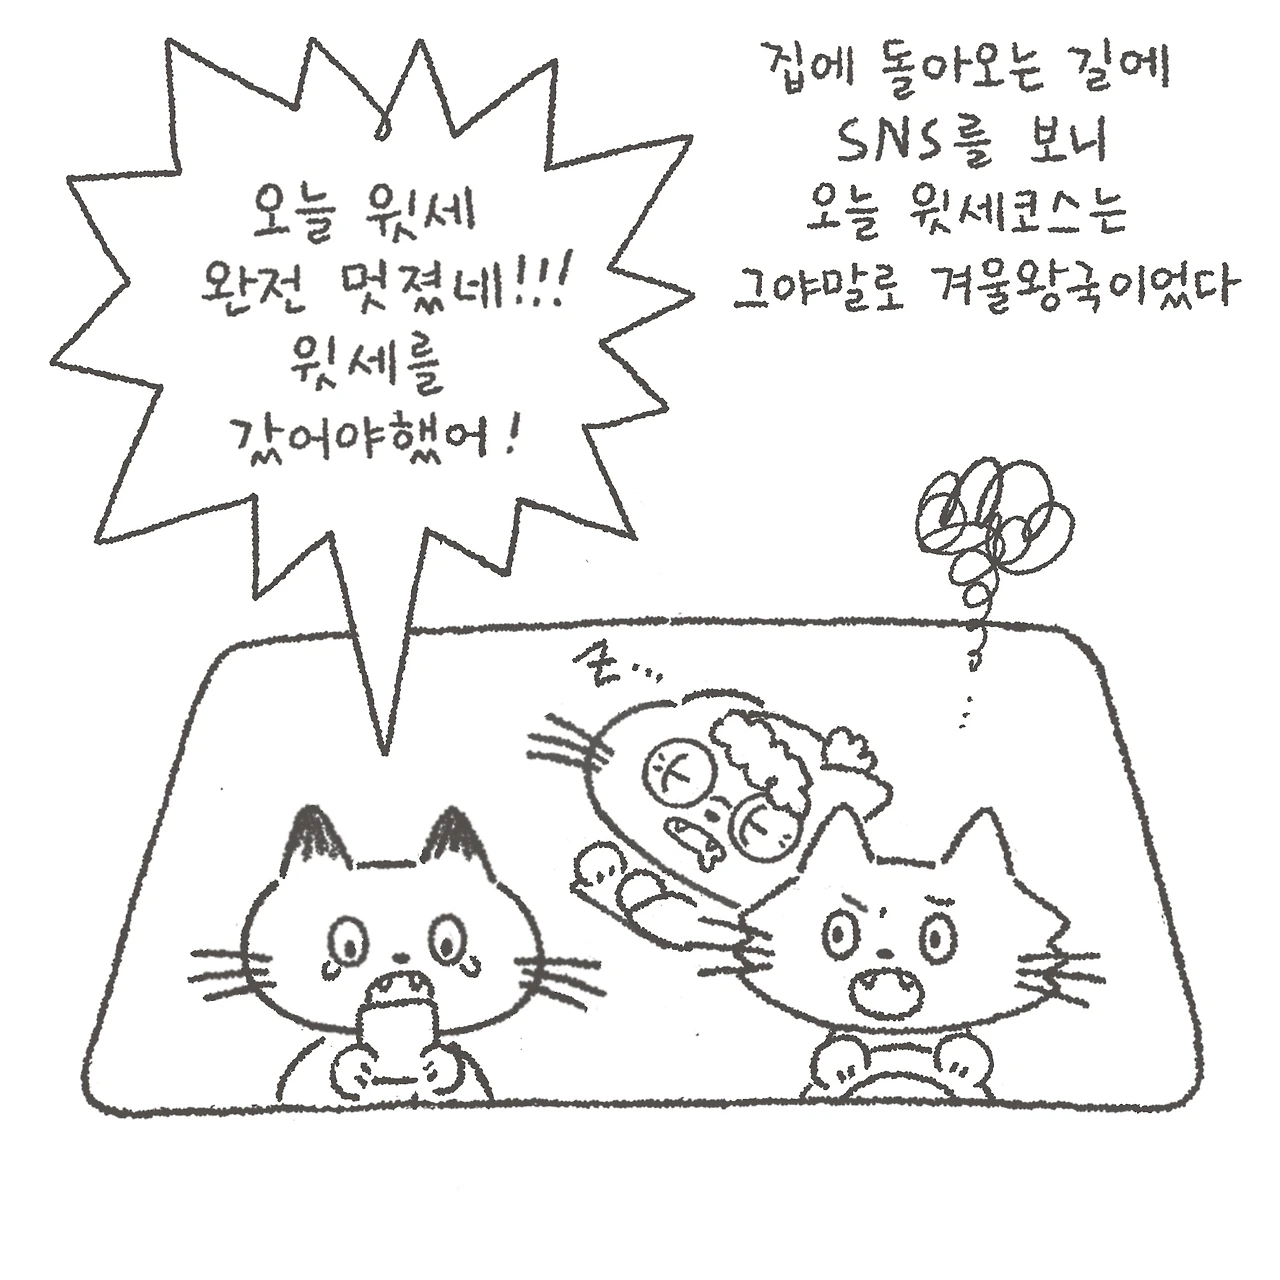 오늘 윗세
완전 멋졌네!!!
윗세를
갔어야했어!
집에 돌아오는 길에
SNS를 보니
오늘 윗세코스는
그야말로 겨울왕국이었다
Z...